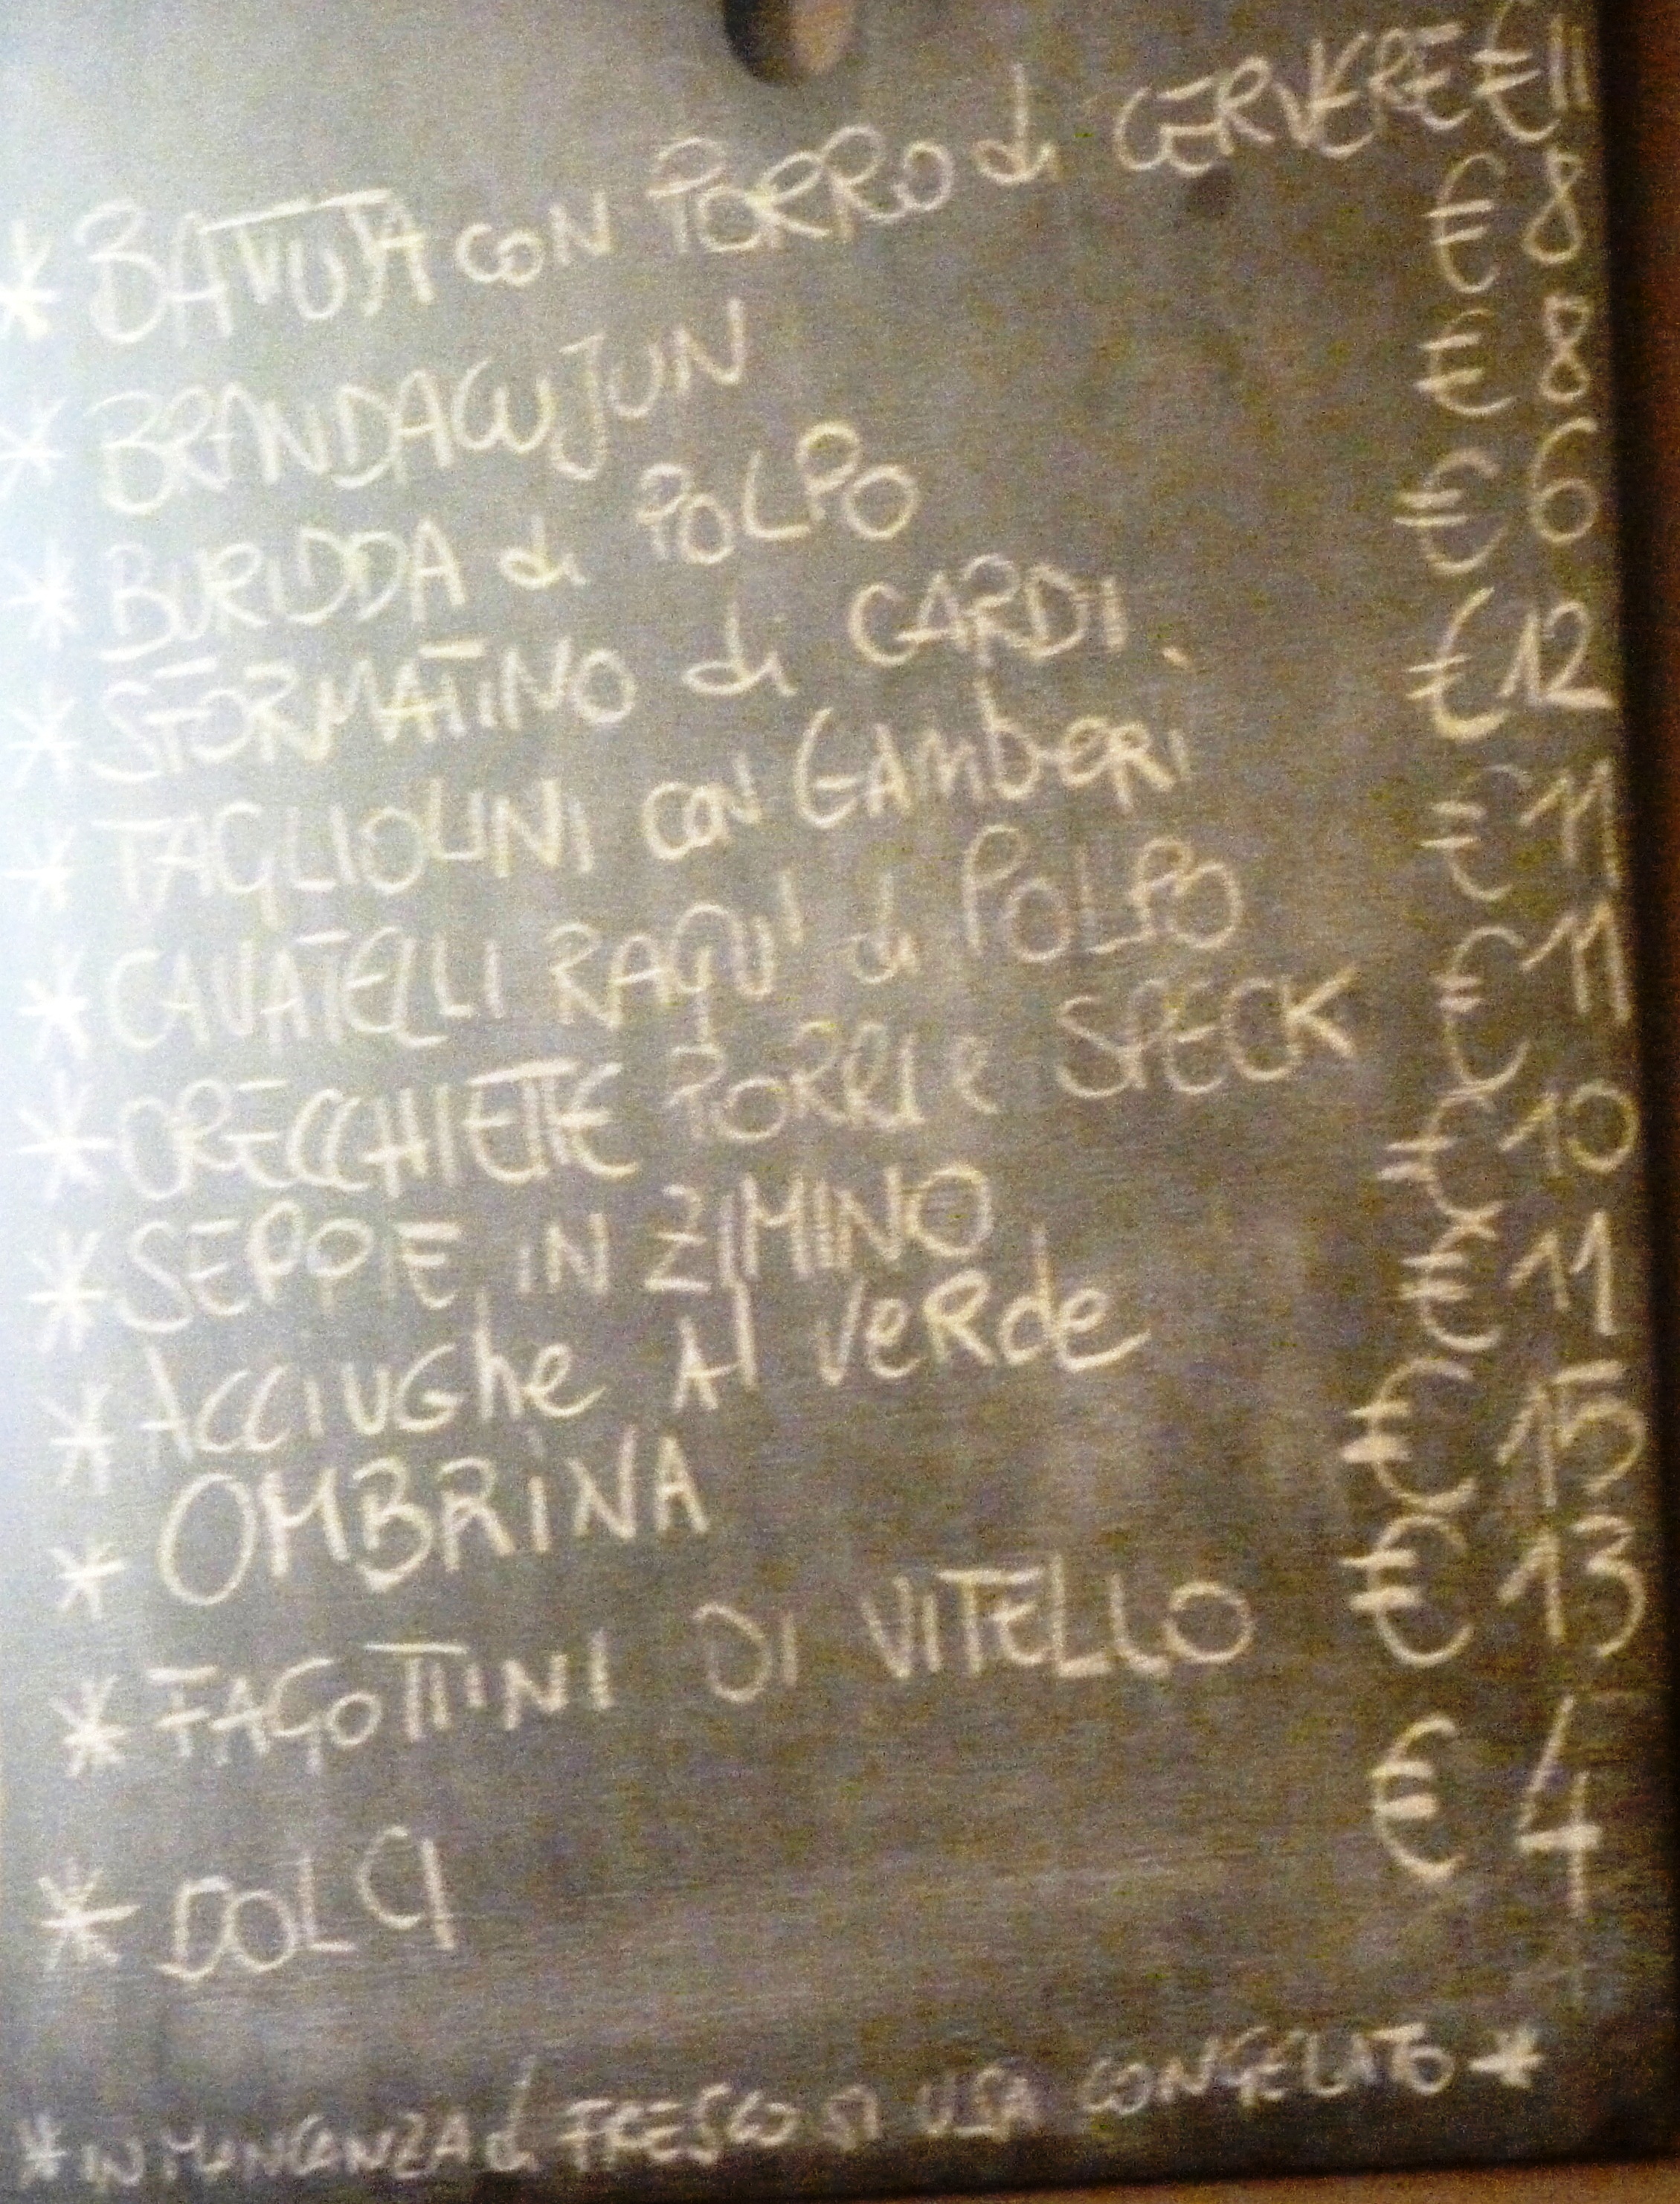 * BATTUTA CON PORRO di CERVERE € 11
* BRANDACUJUN € 8
* BURIDDA di POLPO € 8
* SFORMATINO di CARDI € 6
* TAGLIOLINI CON GAMBERI € 12
* CAVATELLI RAGU' di POLPO € 11
* ORECCHIETTE PORRI e SPECK € 11
* SEPPIE IN ZIMINO € 10
* ACCIUGhe Al VeRde € 11
* OMBRINA € 15
* FAGOTTINI DI VITELLO € 13
* DOLCI € 4
* IN MANCANZA di FRESCO SI USA CONGELATO *